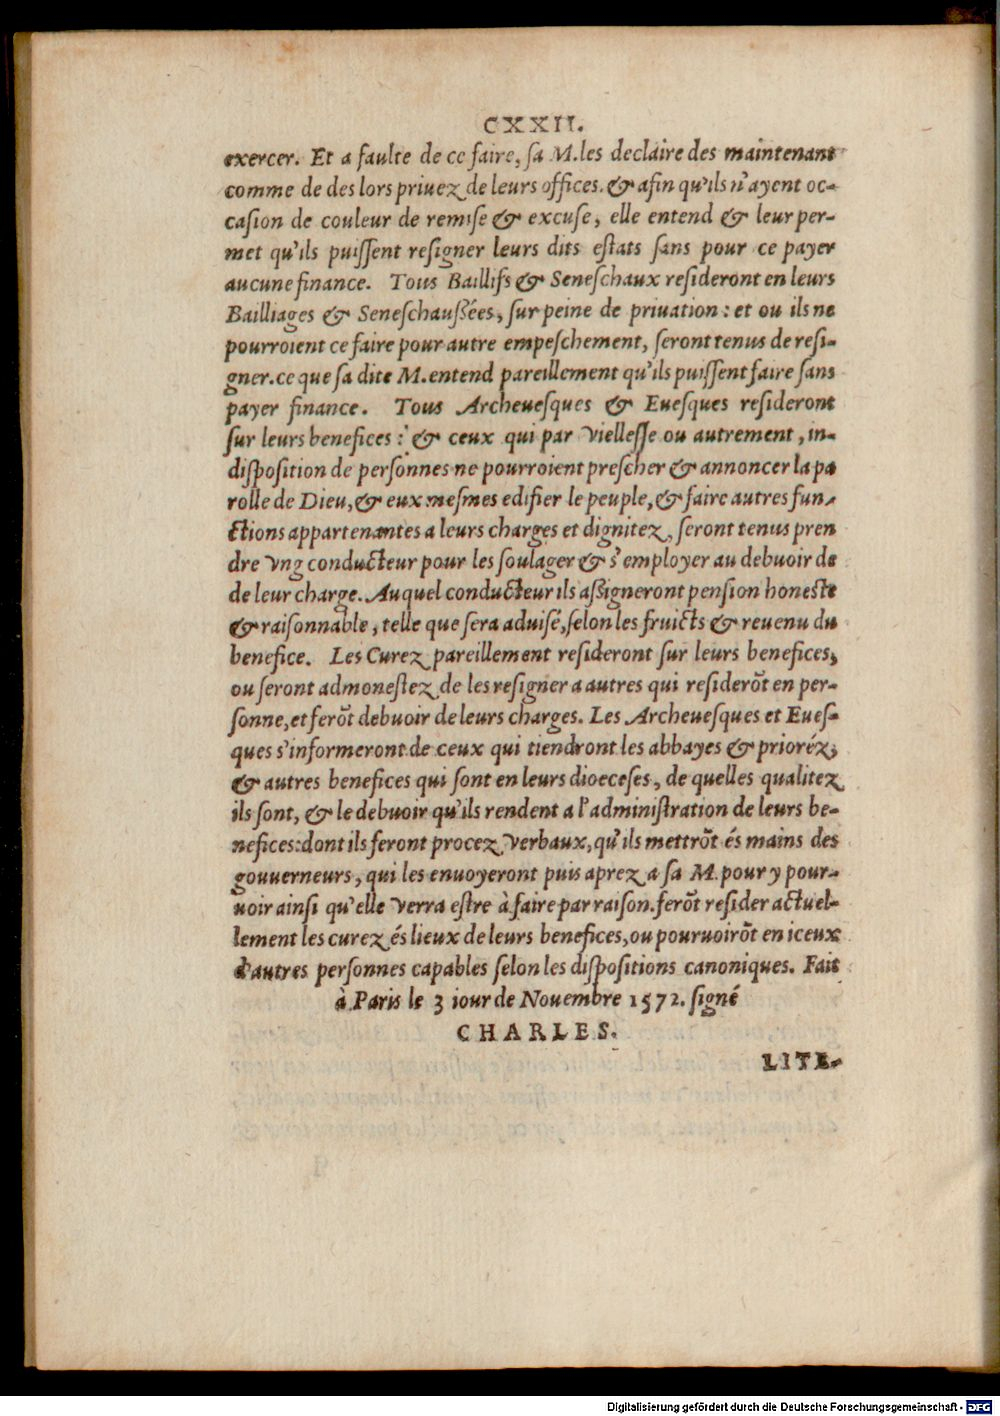 CXXII.
exercer. Et a faulte de ce faire, ſa M. les declaire des maintenant
comme de des lors priuez de leurs offices. & afin qu'ils n'ayent oc-
caſion de couleur de remiſe & excuſe, elle entend & leur per-
met qu'ils puiſſent reſigner leurs dits eſtats ſans pour ce payer
aucune finance. Tous Baillifs & Seneſchaux reſideront en leurs
Bailliages & Seneſchauſſées, ſur peine de priuation: et ou ils ne
pourroient ce faire pour autre empeſchement, ſeront tenus de reſi-
gner. ce que ſa dite M. entend pareillement qu'ils puiſſent faire ſans
payer finance. Tous Archeueſques & Eueſques reſideront
ſur leurs benefices: & ceux qui par vielleſſe ou autrement, in-
diſpoſition de perſonnes ne pourroient preſcher & annoncer la pa
rolle de Dieu, & eux meſmes edifier le peuple, & faire autres fun-
ctions appartenantes a leurs charges et dignitez, ſeront tenus pren
dre vng conducteur pour les ſoulager & s'employer au debuoir de
de leur charge. Auquel conducteur ils aſſigneront penſion honeſte
& raiſonnable, telle que ſera aduiſé, ſelon les fruicts & reuenu du
benefice. Les Curez pareillement reſideront ſur leurs benefices,
ou ſeront admoneſtez de les reſigner a autres qui reſiderōt en per-
ſonne, et ferōt debuoir de leurs charges. Les Archeueſques et Eueſ-
ques s'informeront de ceux qui tiendront les abbayes & prioréz,
& autres benefices qui ſont en leurs dioeceſes, de quelles qualitez
ils ſont, & le debuoir qu'ils rendent a l'adminiſtration de leurs be-
nefices: dont ils feront procez verbaux, qu'ils mettrōt és mains des
gouuerneurs, qui les enuoyeront puis aprez a ſa M. pour y pour-
uoir ainſi qu'elle verra eſtre à faire par raiſon. ferōt reſider actuel-
lement les curez és lieux de leurs benefices, ou pouruoirōt en iceux
d'autres perſonnes capables ſelon les diſpoſitions canoniques. Fait
à Paris le 3 iour de Nouembre 1572. ſigné
CHARLES.
LITE-
Digitalisierung gefördert durch die Deutsche Forschungsgemeinschaft - DFG